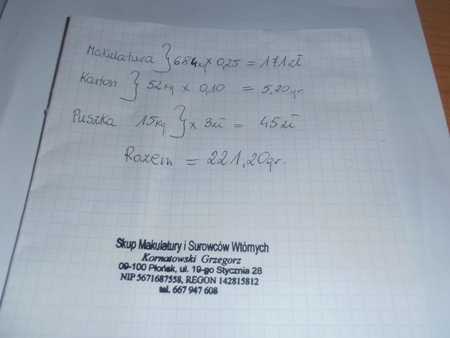 Makulatura } 684kg x 0,25 = 171zł
Karton } 52kg x 0,10 = 5,20gr
Puszka 15kg } x 3zł = 45zł
Razem = 221,20gr.
Skup Makulatury i Surowców Wtórnych
Kornatowski Grzegorz
09-100 Płońsk, ul. 19-go Stycznia 28
NIP 5671687558, REGON 142815812
tel. 667 947 608